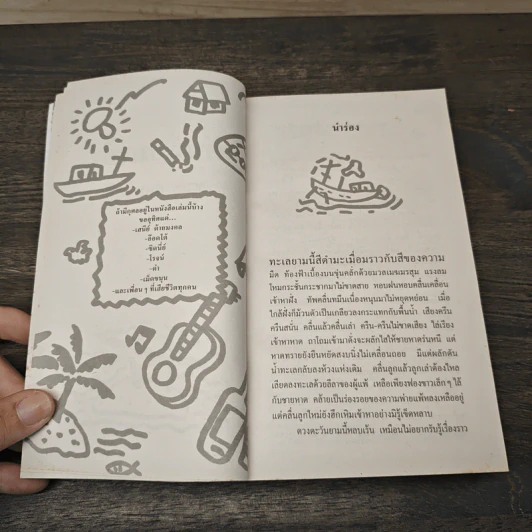 ถ้ามีกุศลอยู่ในหนังสือเล่มนี้บ้าง
ขออุทิศแด่...
-เสนีย์ ด้ายมงคล
-อ๊อดโต้
-ซิดนี่ย์
-โรจน์
-ดำ
-เม็ดขนุน
-และเพื่อน ๆ ที่เสียชีวิตทุกคน
นำร่อง
ทะเลยามนี้สีดำมะเมื่อมราวกับสีของความ
มืด ท้องฟ้าเบื้องบนขุ่นคลั่กด้วยมวลเมฆมรสุม แรงลม
โหมกระชั้นกระชากมาไม่ขาดสาย หอบฝนหอบคลื่นเคลื่อน
เข้าหาฝั่ง ทัพคลื่นทมึนเนื่องหนุนมาไม่หยุดหย่อน เมื่อ
ใกล้ฝั่งก็ม้วนตัวเป็นเกลียวลงกระแทกกับพื้นน้ำ เสียงครืน
ครืนสนั่น คลื่นแล้วคลื่นเล่า ครืน-ครืนไม่ขาดเสียง ไล่เรียง
เข้าหาหาด ถาโถมเข้ามาดั่งจะผลักไสให้ชายหาดร่นหนี แต่
หาดทรายยังยืนหยัดสงบนิ่งไม่เคลื่อนถอย มีแต่ผลักดัน
น้ำทะเลกลับลงห้วงแห่งเดิม คลื่นลูกแล้วลูกเล่าต้องไหล
เสียดลงทะเลด้วยลีลาของผู้แพ้ เหลือเพียงฟองขาวเล็ก ๆ ไว้
กับชายหาด คล้ายเป็นร่องรอยของความพ่ายแพ้หลงเหลืออยู่
แต่คลื่นลูกใหม่ยังฮึกเหิมเข้าหาอย่างมิรู้เข็ดหลาบ
ดวงตะวันยามนี้หลบเร้น เหมือนไม่อยากรับรู้เรื่องราว